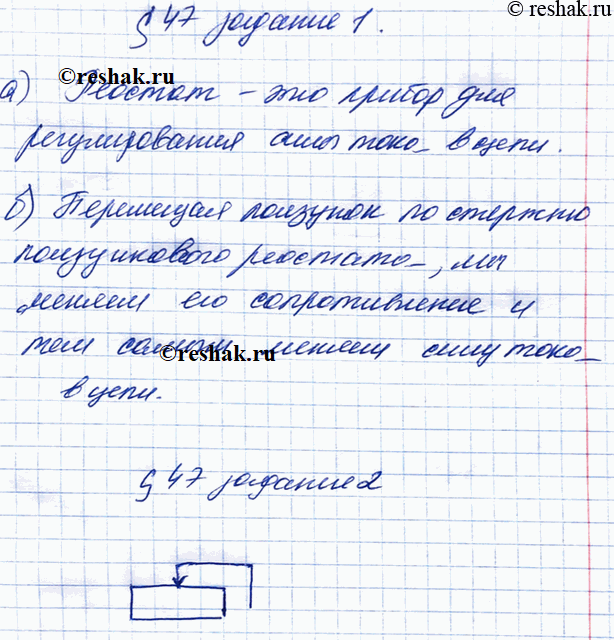 ©reshak.ru
§ 47 задание 1.
©reshak.ru
а) Реостат – это прибор для
регулирования силы тока в цепи.
б) Перемещая ползунок по стержню
ползункового реостата, мы
меняем его сопротивление и
тем самым меняем силу тока
©reshak.ru
в цепи.
§ 47 задание 2